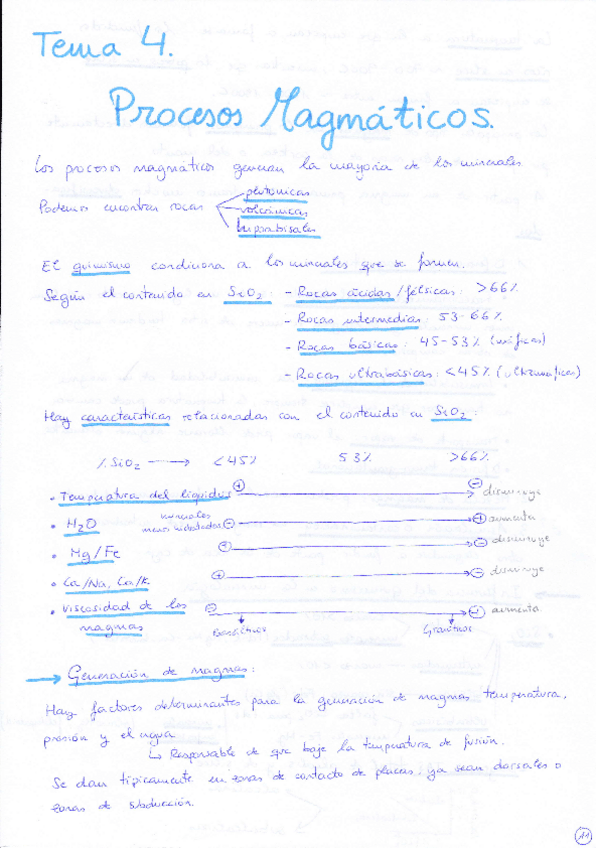 Tema 4.
Procesos Magmáticos.
Los procesos magmáticos generan la mayoría de los minerales
Podemos encontrar rocas
plutónicas
volcánicas
hipoabisales
El quimismo condiciona a los minerales que se forman.
Según el contenido en SiO2: - Rocas ácidas/félsicas: >66%
- Rocas intermedias: 53-66%
- Rocas básicas: 45-53% (máficas)
- Rocas ultrabásicas: <45% (ultramáficas)
Hay características relacionadas con el contenido en SiO2:
% SiO2 → <45% 53% >66%
• Temperatura del liquidus + → - disminuye
• H2O minerales menos hidratados - → + aumenta
• Mg/Fe + → - disminuye
• Ca/Na, Ca/K + → - disminuye
• Viscosidad de los magmas - → + aumenta
Basálticos Graníticos
→ Generación de magmas:
Hay factores determinantes para la generación de magmas temperatura,
presión y el agua
↳ Responsable de que baje la temperatura de fusión.
Se dan típicamente en zonas de contacto de placas, ya sean dorsales o
zonas de subducción.
11